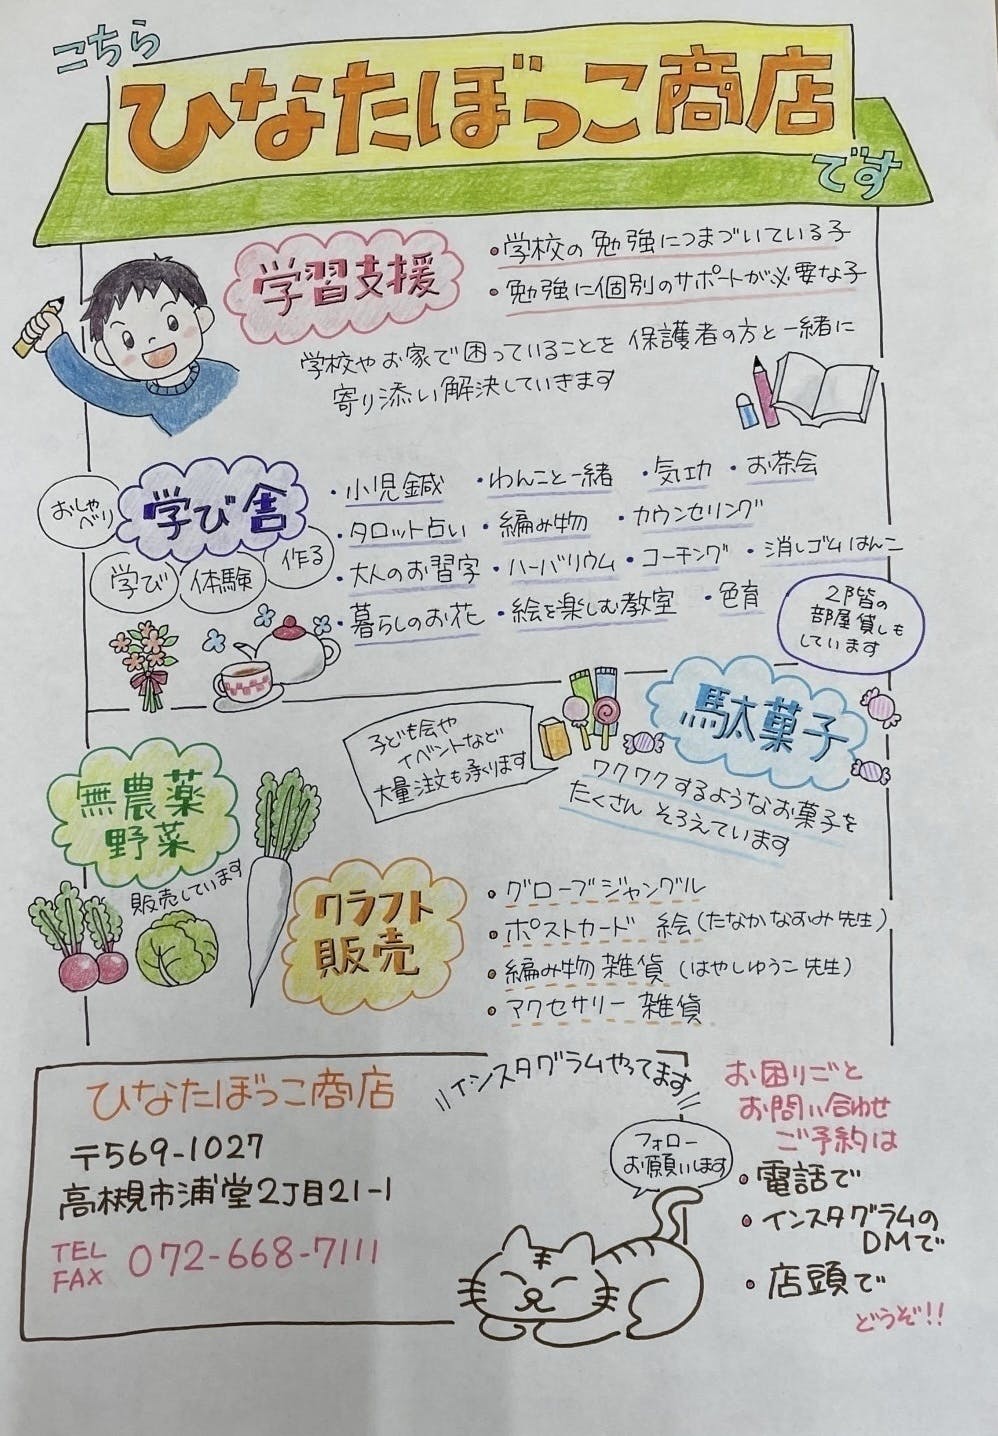 こちら
ひなたぼっこ商店
です
学習支援
・学校の勉強につまづいている子
・勉強に個別のサポートが必要な子
学校やお家で困っていることを 保護者の方と一緒に
寄り添い解決していきます
おしゃ
べり
学び舎
学び
体験
作る
・小児鍼 ・わんこと一緒 ・気功 ・お茶会
・タロット占い ・編み物 ・カウンセリング
・大人のお習字 ・ハーバリウム ・コーチング ・消しゴムはんこ
・暮らしのお花 ・絵を楽しむ教室 ・色育
2階の
部屋貸しも
しています
駄菓子
子ども会や
イベントなど
大量注文も承ります
ワクワクするようなお菓子を
たくさん そろえています
無農薬
野菜
販売しています
クラフト
販売
・グローブジャングル
・ポストカード 絵(たなかなおみ先生)
・編み物雑貨(はやしゆうこ先生)
・アクセサリー 雑貨
ひなたぼっこ商店
〒569-1027
高槻市浦堂2丁目21-1
TEL
FAX 072-668-7111
インスタグラムやってます
フォロー
お願いします
お困りごと
お問い合わせ
ご予約は
・電話で
・インスタグラムの
DMで
・店頭で
どうぞ!!